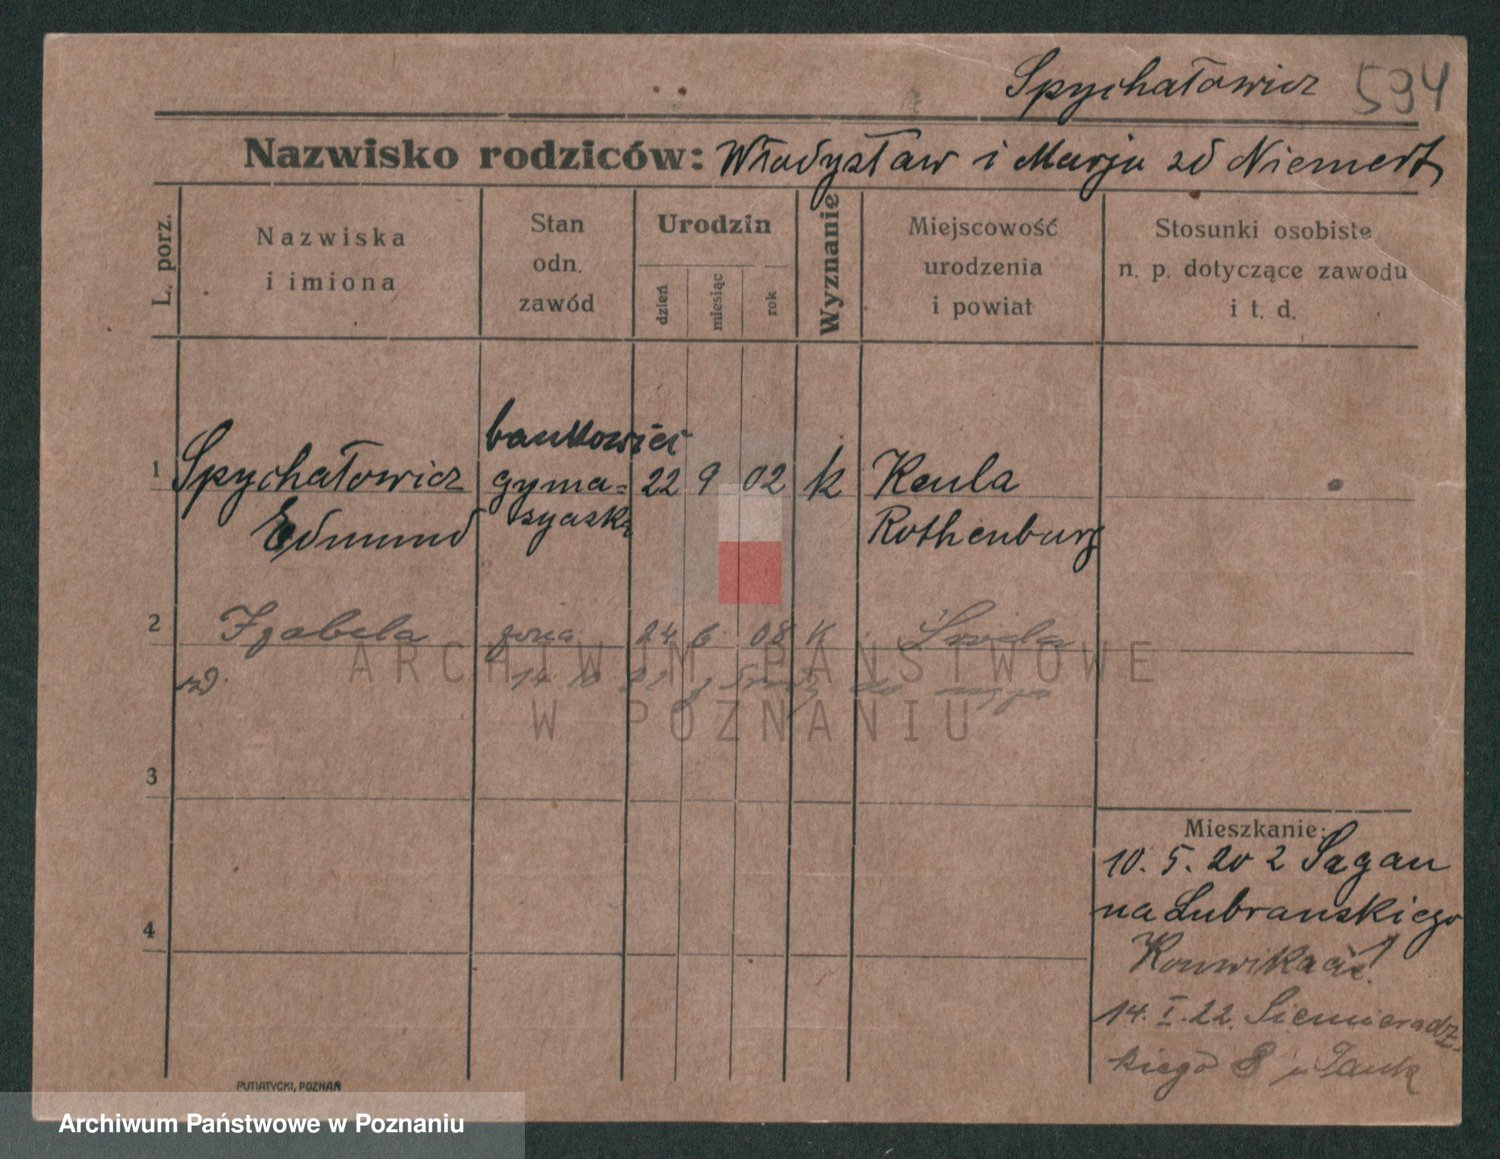 Spychałowicz 594
Nazwisko rodziców: Władysław i Marja zd Niemert
L. porz.
Nazwiska
i imiona
Stan
odn.
zawód
Urodzin
dzień
miesiąc
rok
Wyznanie
Miejscowość
urodzenia
i powiat
Stosunki osobiste
n. p. dotyczące zawodu
i t. d.
bankowiec
1 Spychałowicz gyma= 22 9 02 k Keula
Edmund Rothenburg
2 Izabela żona 24 6 08 K
zd.
ARCHIWUM PAŃSTWOWE
W POZNANIU
3
4
Mieszkanie:
10. 5. 20 z Sagan
na Lubranskiego
14. I. 22. Siemieradz
kiego 8
PUTIATYCKI, POZNAŃ
Archiwum Państwowe w Poznaniu